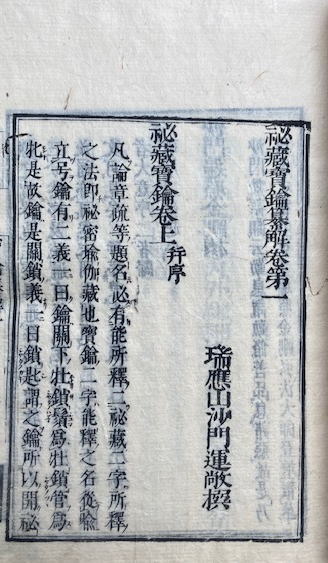 祕藏寶鑰纂解卷第一
瑞應山沙門運敞撰
祕藏寶鑰卷上 幷序
凡論章疏等題名必有能所釋二祕藏二字所釋
之法即祕密瑜伽藏也寶鑰二字能釋之名從喩
立号鑰有二義一曰鑰關下牡鎖鬚爲牡鎖管爲
牝是故鑰是關鎖義二曰鎖匙謂之鑰所以開祕